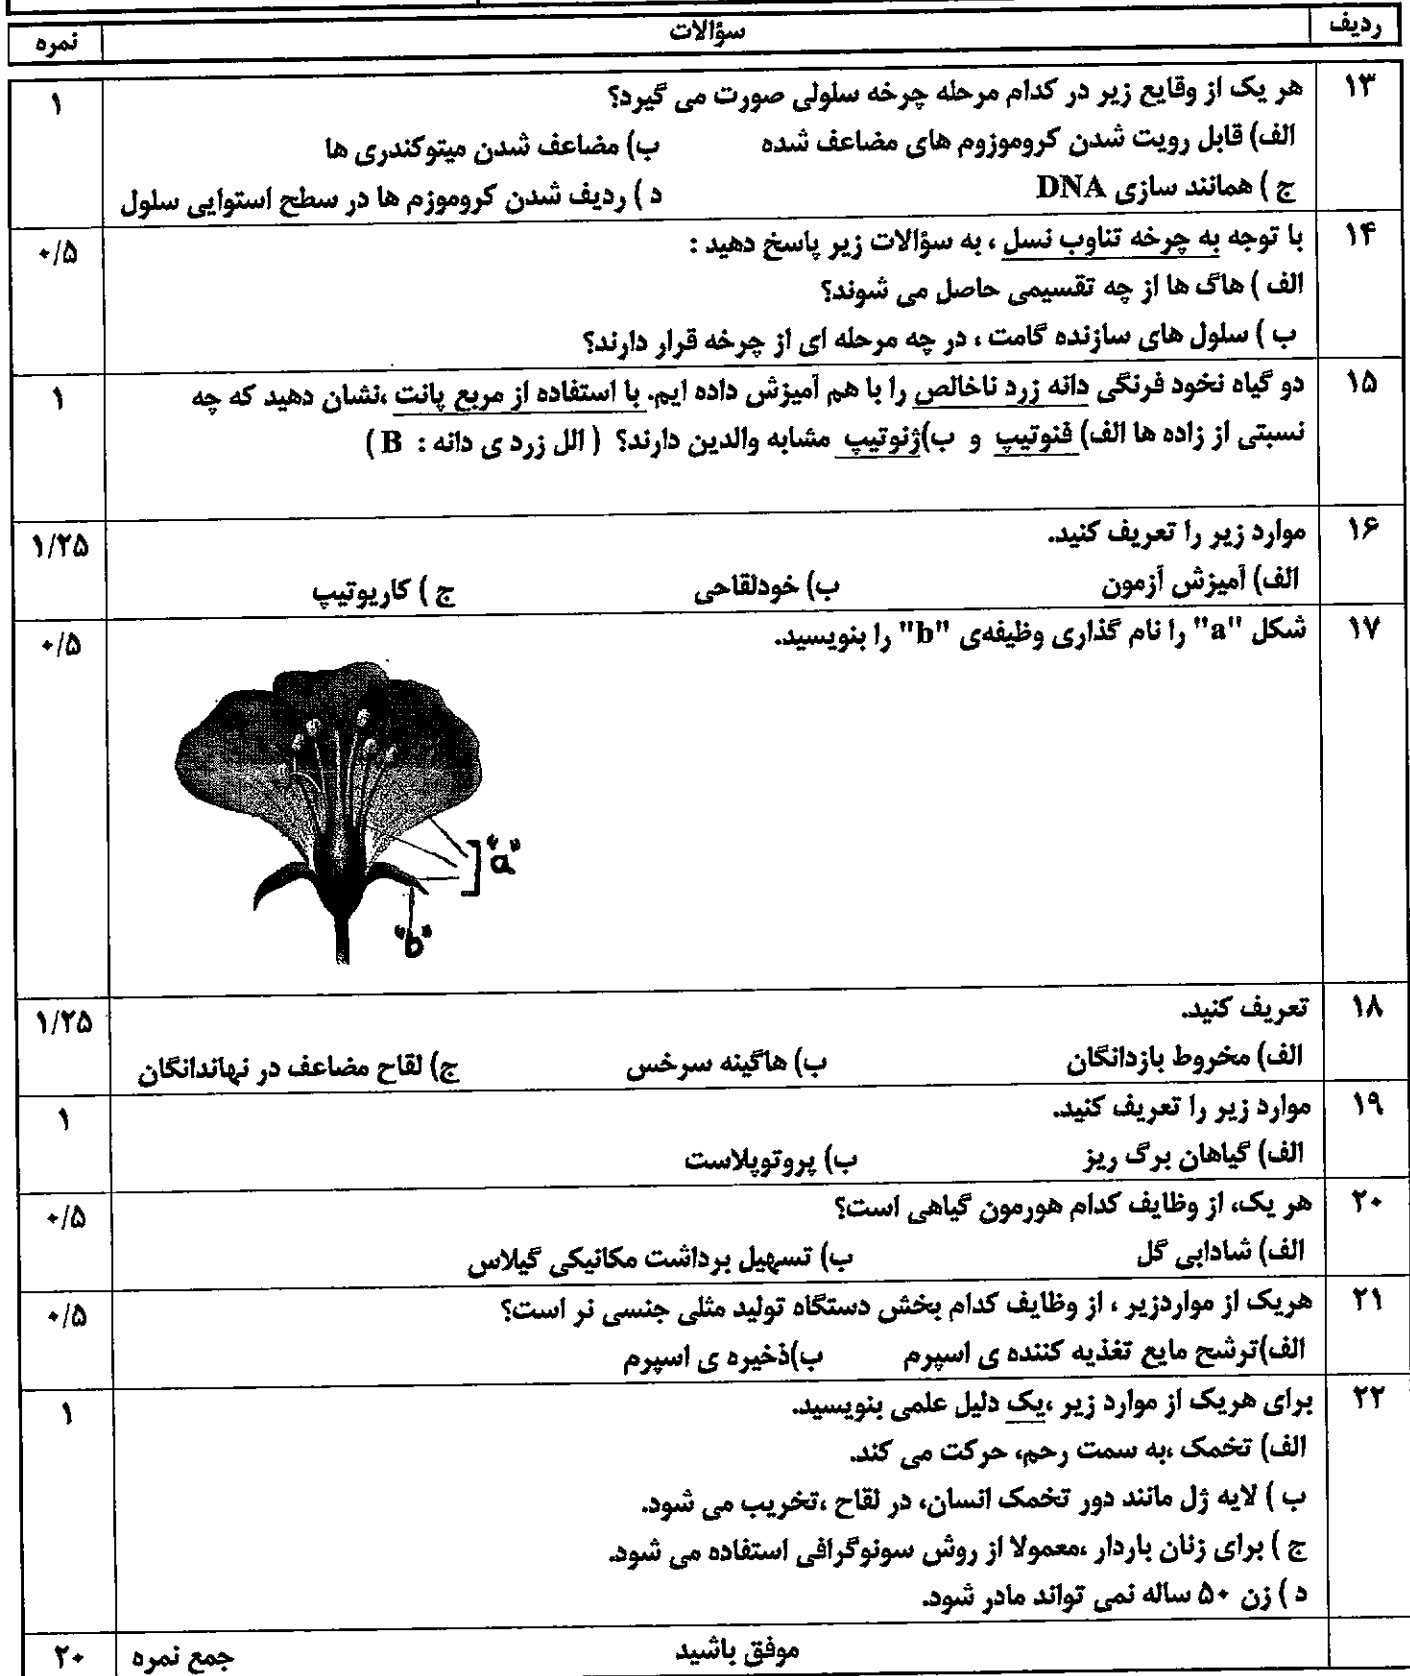 ردیف سؤالات نمره
۱۳ هر یک از وقایع زیر در کدام مرحله چرخه سلولی صورت می گیرد؟ ۱
الف) قابل رویت شدن کروموزوم های مضاعف شده ب) مضاعف شدن میتوکندری ها
ج ) همانند سازی DNA د ) ردیف شدن کروموزم ها در سطح استوایی سلول
۱۴ با توجه به چرخه تناوب نسل ، به سؤالات زیر پاسخ دهید : ۰/۵
الف ) هاگ ها از چه تقسیمی حاصل می شوند؟
ب ) سلول های سازنده گامت ، در چه مرحله ای از چرخه قرار دارند؟
۱۵ دو گیاه نخود فرنگی دانه زرد ناخالص را با هم آمیزش داده ایم. با استفاده از مربع پانت ،نشان دهید که چه ۱
نسبتی از زاده ها الف) فنوتیپ و ب)ژنوتیپ مشابه والدین دارند؟ ( الل زرد ی دانه : B )
۱۶ موارد زیر را تعریف کنید. ۱/۲۵
الف) آمیزش آزمون ب) خودلقاحی ج ) کاریوتیپ
۱۷ شکل "a" را نام گذاری وظیفه‌ی "b" را بنویسید. ۰/۵
"a"
"b"
۱۸ تعریف کنید. ۱/۲۵
الف) مخروط بازدانگان ب) هاگینه سرخس ج) لقاح مضاعف در نهاندانگان
۱۹ موارد زیر را تعریف کنید. ۱
الف) گیاهان برگ ریز ب) پروتوپلاست
۲۰ هر یک، از وظایف کدام هورمون گیاهی است؟ ۰/۵
الف) شادابی گل ب) تسهیل برداشت مکانیکی گیلاس
۲۱ هریک از مواردزیر ، از وظایف کدام بخش دستگاه تولید مثلی جنسی نر است؟ ۰/۵
الف)ترشح مایع تغذیه کننده ی اسپرم ب)ذخیره ی اسپرم
۲۲ برای هریک از موارد زیر ،یک دلیل علمی بنویسید. ۱
الف) تخمک ،به سمت رحم، حرکت می کند.
ب ) لایه ژل مانند دور تخمک انسان، در لقاح ،تخریب می شود.
ج ) برای زنان باردار ،معمولا از روش سونوگرافی استفاده می شود.
د ) زن ۵۰ ساله نمی تواند مادر شود.
موفق باشید جمع نمره ۲۰